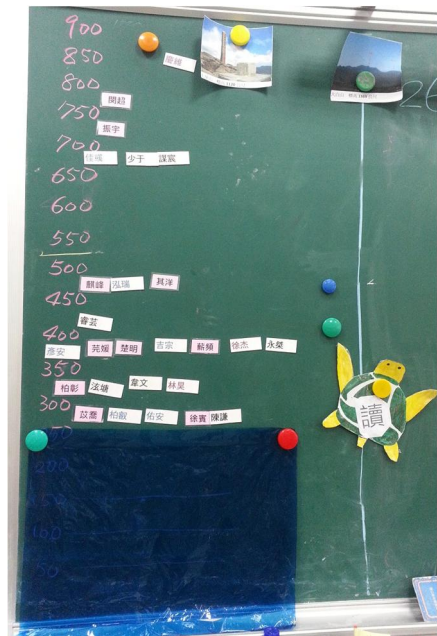 900
850
800
開超
750
振宇
700
少于 謀宸
650
600
550
500
麒峰 泓瑞 其洋
450
睿芸
400
彥安 苑媛 楚明 吉宸 薪頻 徐杰 永榮
350
柏彰 泫塘 韋文 林昊
300
苡喬 柏叡 佑安 徐賓 陳謙
200
150
100
50
讀
26